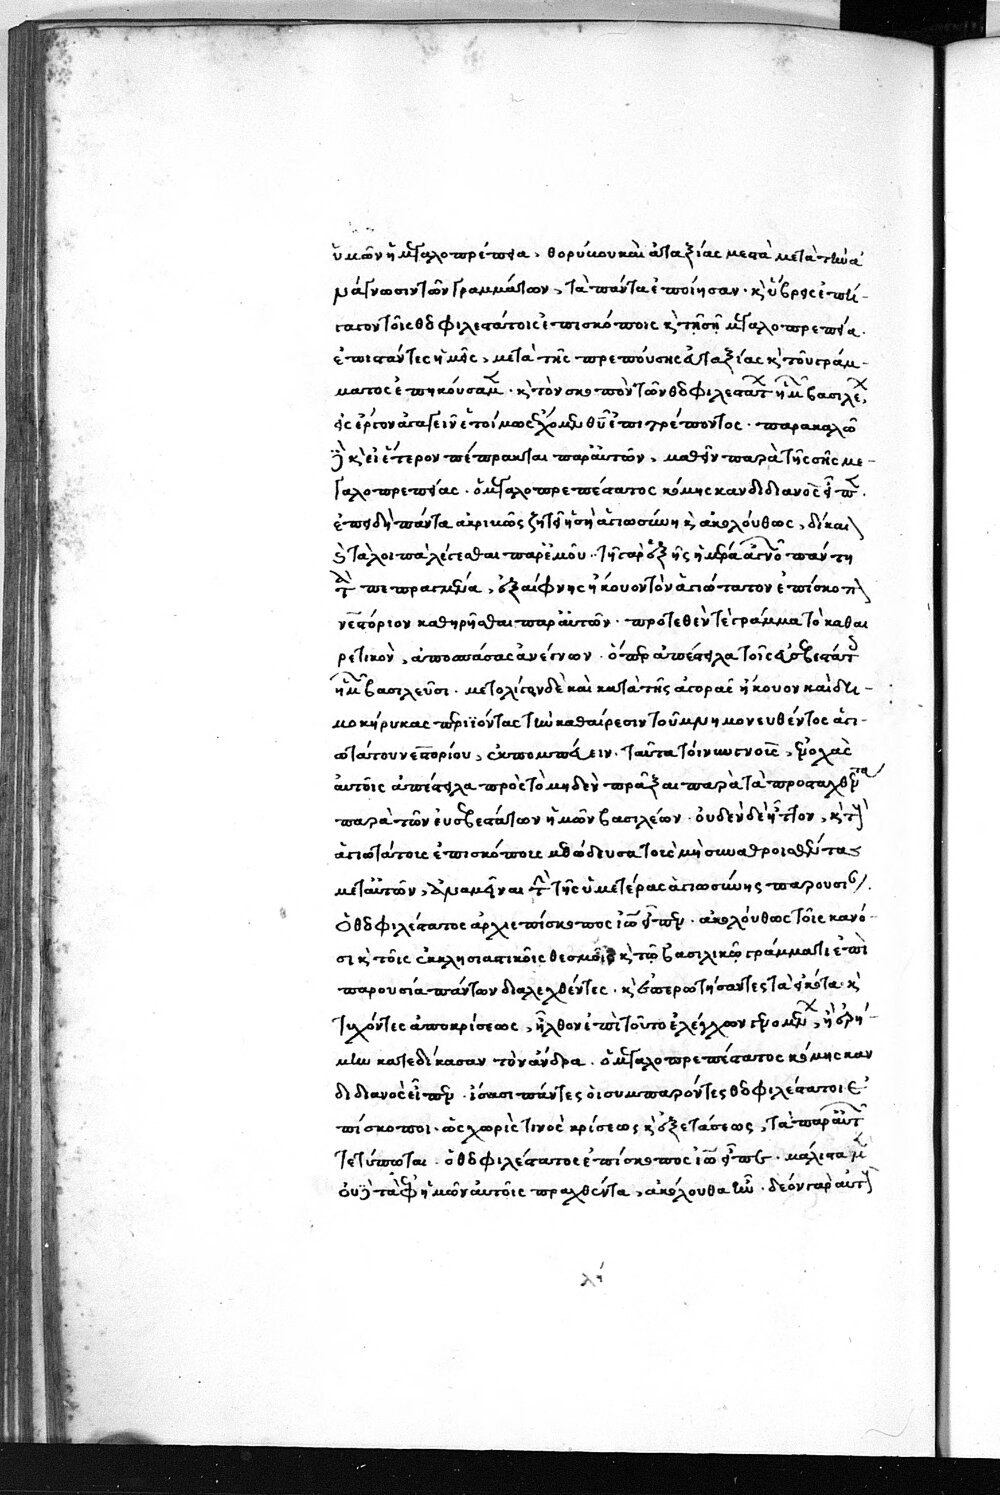 ὑμῶν ἡ μεγαλοπρέπεια, θορύβου καὶ ἀταξίας μετὰ μετὰ τὴν ἀ
νάγνωσιν τῶν γραμμάτων, τὰ πάντα ἐποίησαν. κ ὕβρεις ἐπή-
γαγον τοῖς θεοφιλεστάτοις ἐπισκόποις κ τῇ σῇ μεγαλοπρεπεία.
ἐπιστάντες ἡμεῖς, μετὰ τῆς πρεπούσης εὐταξίας κ τοῦ γράμ-
ματος ἐπηκούσαμεν. κ τὸν σκοπὸν τῶν θεοφιλεστάτων ἡμῶν βασιλέων,
εἰς ἔργον ἀγαγεῖν ἑτοίμως ἔχομεν θεοῦ ἐπιτρέποντος. παρακαλῶ
δὲ κ εἰ ἕτερον πέπρακται παρ' αὐτῶν, μαθεῖν παρὰ τῆς σῆς με-
γαλοπρεπείας. ὁ μεγαλοπρεπέστατος κόμης κανδιδιανὸς εἶπεν.
ἐπειδὴ πάντα ἀκριβῶς ζητεῖ ἡ σὴ ἁγιωσύνη κ ἀκολούθως, δίκαιον
κ τὰ λοιπὰ λέγεσθαι παρ' ἐμοῦ. τῇ γὰρ ἑξῆς ἡμέρα ἀγνοῶν παντη
τὰ πεπραγμένα, ἐξαίφνης ἤκουον τὸν ἁγιώτατον ἐπίσκοπον
νεστόριον καθηρῆσθαι παρ' αὐτῶν. προτεθὲν τὲ γράμμα τὸ καθαι
ρετικὸν, ἀποσπάσας ἀνέγνων. ὅπερ ἀπέστειλα τοῖς εὐσεβεστάτοις
ἡμῶν βασιλεῦσι. μετ' ὀλίγον δὲ καὶ κατὰ τῆς ἀγορᾶς ἤκουον καὶ δη-
μοκήρυκας περιϊόντας τὴν καθαίρεσιν τοῦ μνημονευθέντος ἁγι-
ωτάτου νεστορίου, ἐκπομπεύειν. ταῦτα τοίνυν γνοὺς, ἐντολὰς
αὐτοῖς ἀπέστειλα πρὸς τὸ μηδὲν πρᾶξαι παρὰ τὰ προσταχθέντα
παρὰ τῶν εὐσεβεστάτων ἡμῶν βασιλέων. οὐδὲν δὲ ἧττον, κ τοῖς
ἁγιωτάτοις ἐπισκόποις μεθώδευσα τοῖς μὴ συναθροισθεῖσι
μετ' αὐτῶν, ἀναμεῖναι τὴν τῆς ὑμετέρας ἁγιωσύνης παρουσίαν.
ὁ θεοφιλέστατος ἀρχιεπίσκοπος ἰω εἶπεν. ἀκολούθως τοῖς κανό-
σι κ τοῖς ἐκκλησιαστικοῖς θεσμοῖς κ τῷ βασιλικῷ γράμματι ἐπὶ
παρουσία πάντων διαλεχθέντες. κ ἐπερωτήσαντες τὰ εἰκότα. κ
τυχόντες ἀποκρίσεως, ἦλθον ἐπὶ τοῦτο ἐλέγχων γενομένων, ἢ ἐρή-
μην κατεδίκασαν τὸν ἄνδρα. ὁ μεγαλοπρεπέστατος κόμης καν
διδιανὸς εἶπεν. ἴσασι πάντες οἱ συμπαρόντες θεοφιλέστατοι ἐ
πίσκοποι. ὡς χωρὶς τινὸς κρίσεως κ ἐξετάσεως, τὰ παρ' αὐτῶν
τετύπωται. ὁ θεοφιλέστατος ἐπίσκοπος ἰω εἶπεν. μάλιστα μὲν
οὐδὲ τὰ ἐφ' ἡμῶν αὐτοῖς πραχθέντα, ἀκόλουθα ἦν. δεόν γὰρ αὐτοὺς